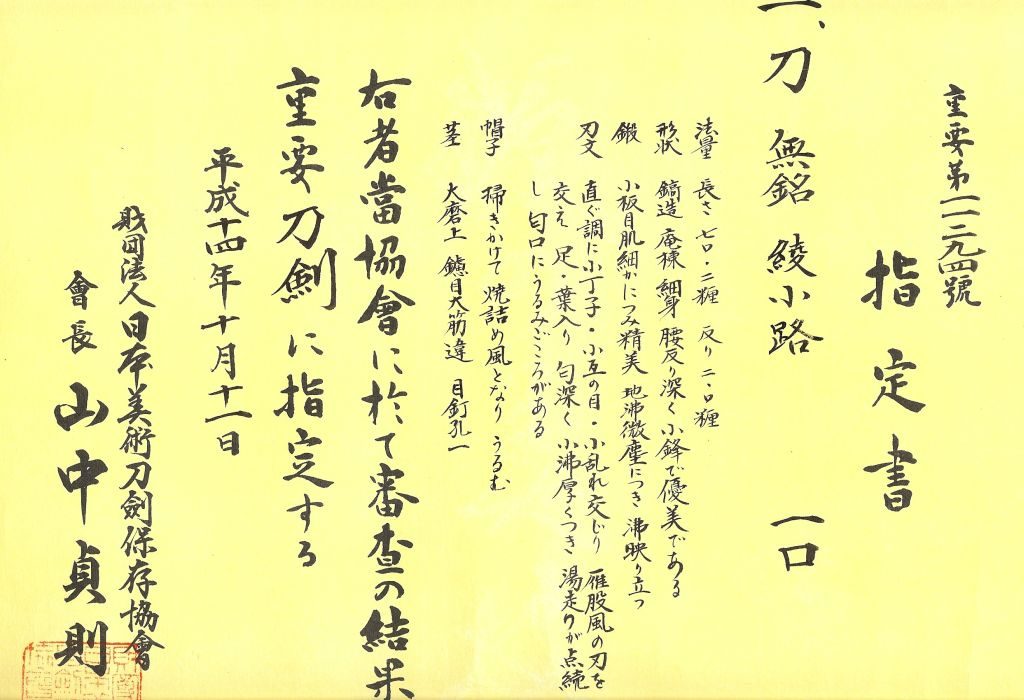 重要第一一二九四號
指定書
一、刀 無銘 綾小路 一口
法量 長さ 七〇・二糎 反り 二・〇糎
形状 鎬造 庵棟 細身 腰反り深く小鋒で優美である
鍛 小板目肌細かにつみ精美 地沸微塵につき 沸映り立つ
刃文 直ぐ調に小丁子・小互の目・小乱れ交じり 雁股風の刃を
交え 足・葉入り 匂深く 小沸厚くつき 湯走りが点続
し 匂口にうるみごころがある
帽子 掃きかけて 焼詰め風となり うるむ
茎 大磨上 鑢目大筋違 目釘孔一
右者當協會に於て審査の結果
重要刀劍に指定する
平成十四年十月十一日
財団法人日本美術刀劍保存協會
會長 山中貞則